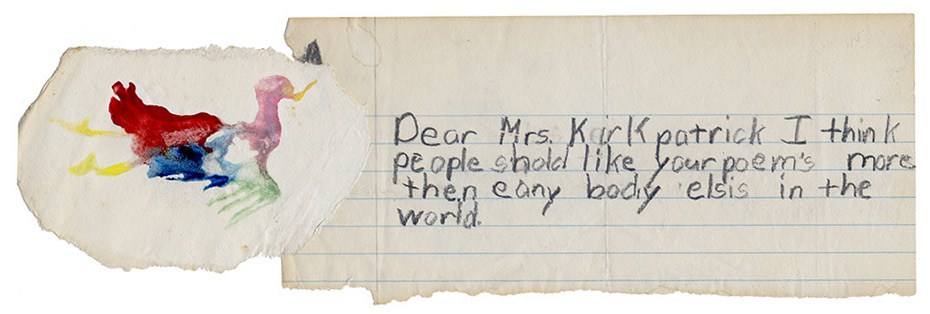 Dear Mrs. Kirkpatrick I think
people shold like your poem's more
then eany body elsis in the
world.